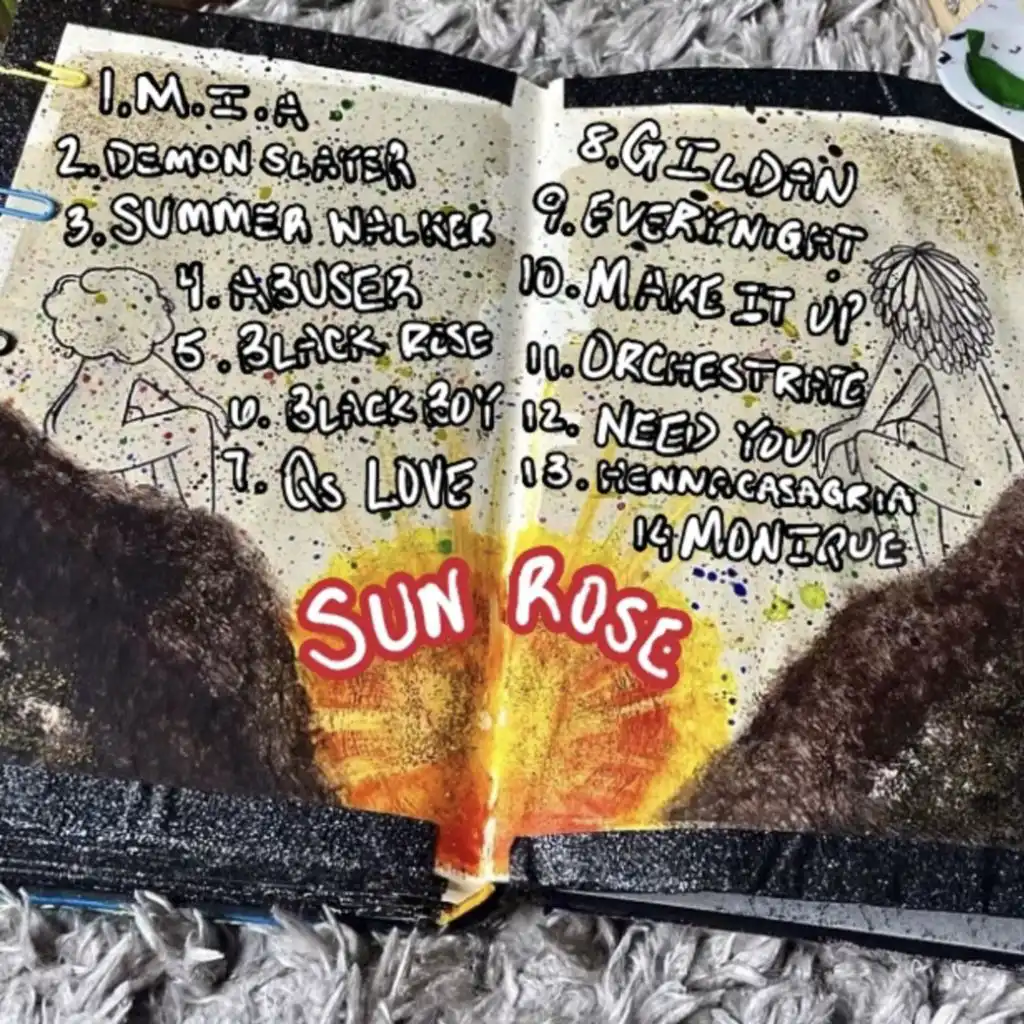 1. M.I.A
2. DEMON SLAYER
3. SUMMER WALKER
4. ABUSER
5. BLACK ROSE
6. BLACK BOY
7. Qs LOVE
8. GILDAN
9. EVERYNIGHT
10. MAKE IT UP
11. ORCHESTRATE
12. NEED YOU
13. HENNACASAGRIA
14 MONIQUE
SUN ROSE